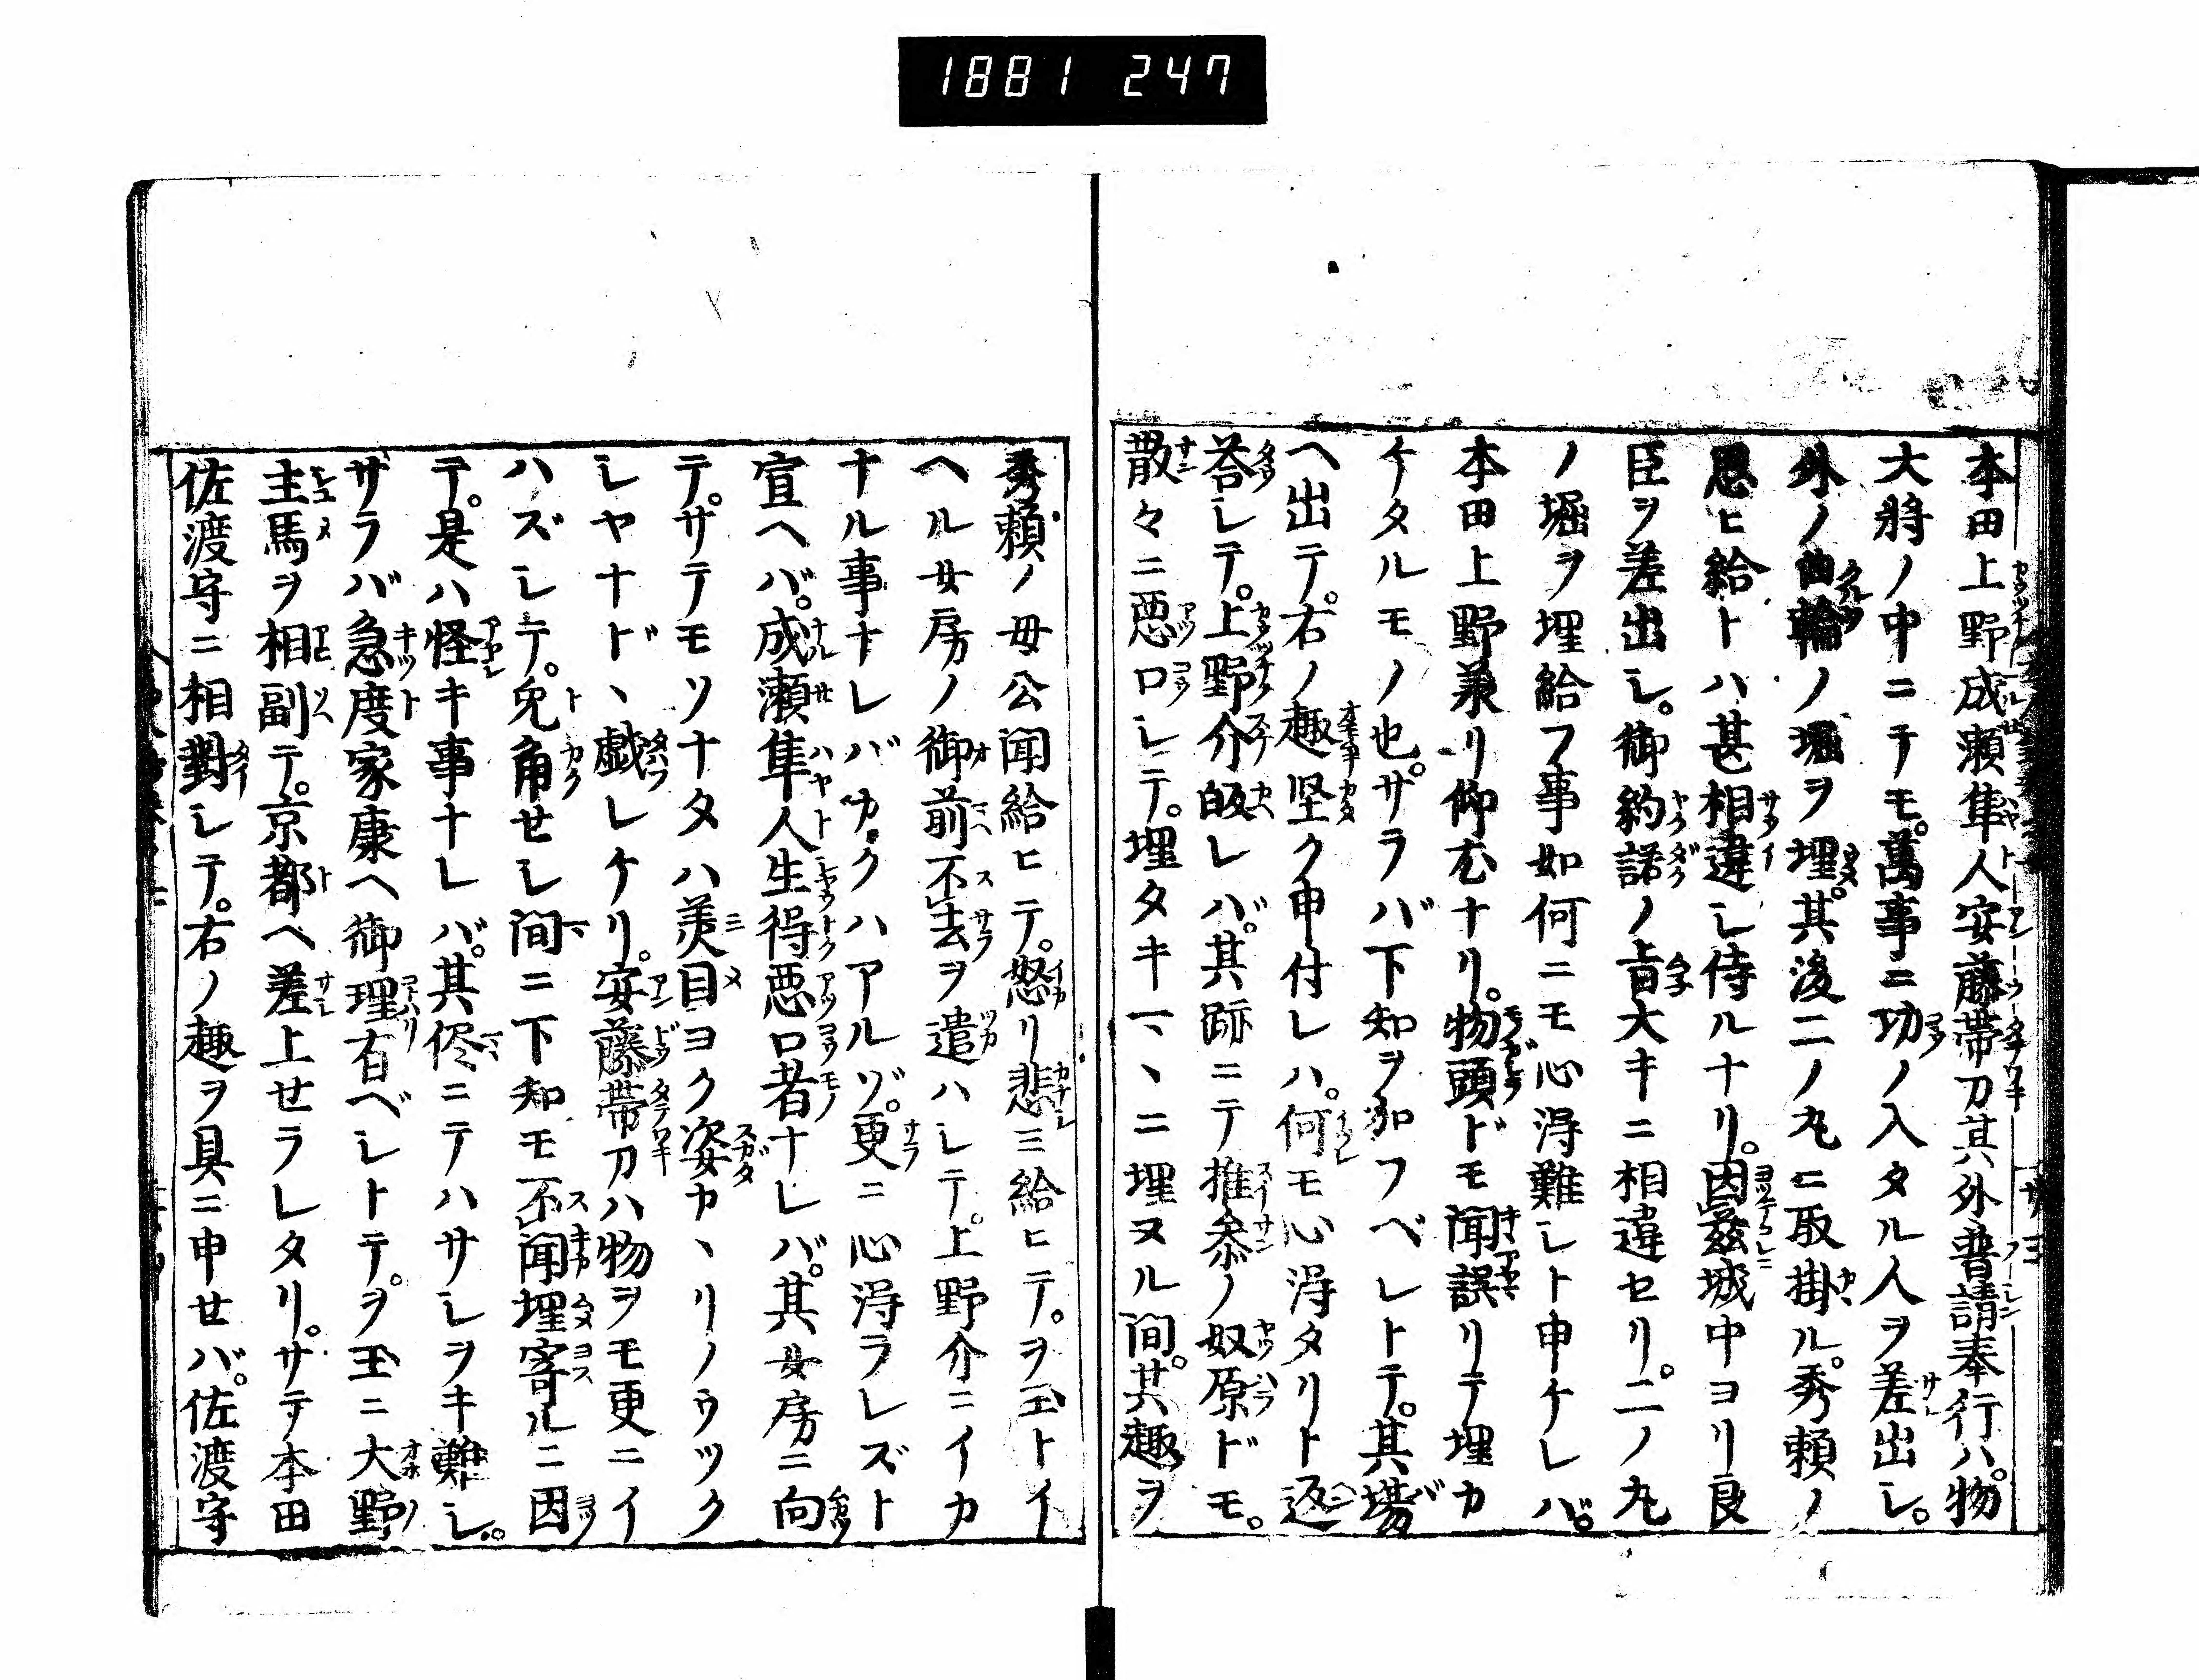 1881 247
本田上野成瀬隼人安藤帯刀其外普請奉行ハ。物
大將ノ中ニテモ。萬事ニ功ノ入タル人ヲ差出シ。
外ノ曲輪ノ堀ヲ埋。其後二ノ丸ニ取掛ル。秀頼ノ
思ヒ給トハ甚相違シ侍ルナリ。因茲城中ヨリ良
臣ヲ差出シ。御約諾ノ旨大キニ相違セリ。二ノ丸
ノ堀ヲ埋給フ事如何ニモ心淂難シト申ケレバ。
本田上野兼リ仰尤ナリ。物頭ドモ聞誤リテ埋カ
ケタルモノ也。サラバ下知ヲ加フベレトテ。其塲
ヘ出テ。右ノ趣堅ク申付レハ。何モ心淂タリト返
荅レテ。上野介皈レバ。其跡ニテ推参ノ奴原ドモ。
散々ニ悪口レテ。埋タキ一ヽニ埋ヌル間。其趣ヲ
秀頼ノ母公聞給ヒテ。怒リ悲ミ給ヒテ。ヲ玉トイ
ヘル女房ノ御前不去ヲ遣ハレテ。上野介ニイカ
ナル事ナレバカクハアルゾ。更ニ心淂ラレズト
宣ヘバ。成瀬隼人生得悪口者ナレバ。其女房ニ向
テ。サテモソナタハ美目ヨク姿カヽリノウツク
シヤナドヽ戯レケリ。安藤帯刀ハ物ヲモ更ニイ
ハズシテ。兔角セシ間ニ下知モ不聞埋寄ルニ因
テ。是ハ怪キ事ナレバ。其侭ニテハサシヲキ難シ。
サラバ急度家康ヘ御理有ベシトテ。ヲ玉ニ大野
主馬ヲ相副テ。京都ヘ差上セラレタリ。サテ本田
佐渡守ニ相對レテ。右ノ趣ヲ具ニ申せバ。佐渡守